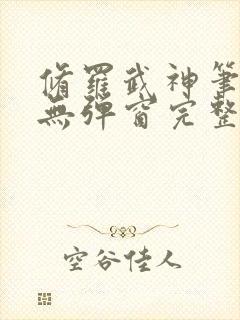 脩羅武神筆
無彈窗完整
空谷佳人